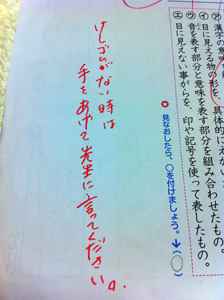 漢字の意味
㋐目に見える物の形を、具体的にえがいたもの。
㋑音を表す部分と意味を表す部分を組み合わせたもの。
㋓目に見えない事がらを、印や記号を使って表したもの。
見なおしたら、○を付けましょう。→○
けしゴムがない時は
手をあげて先生に言ってください。